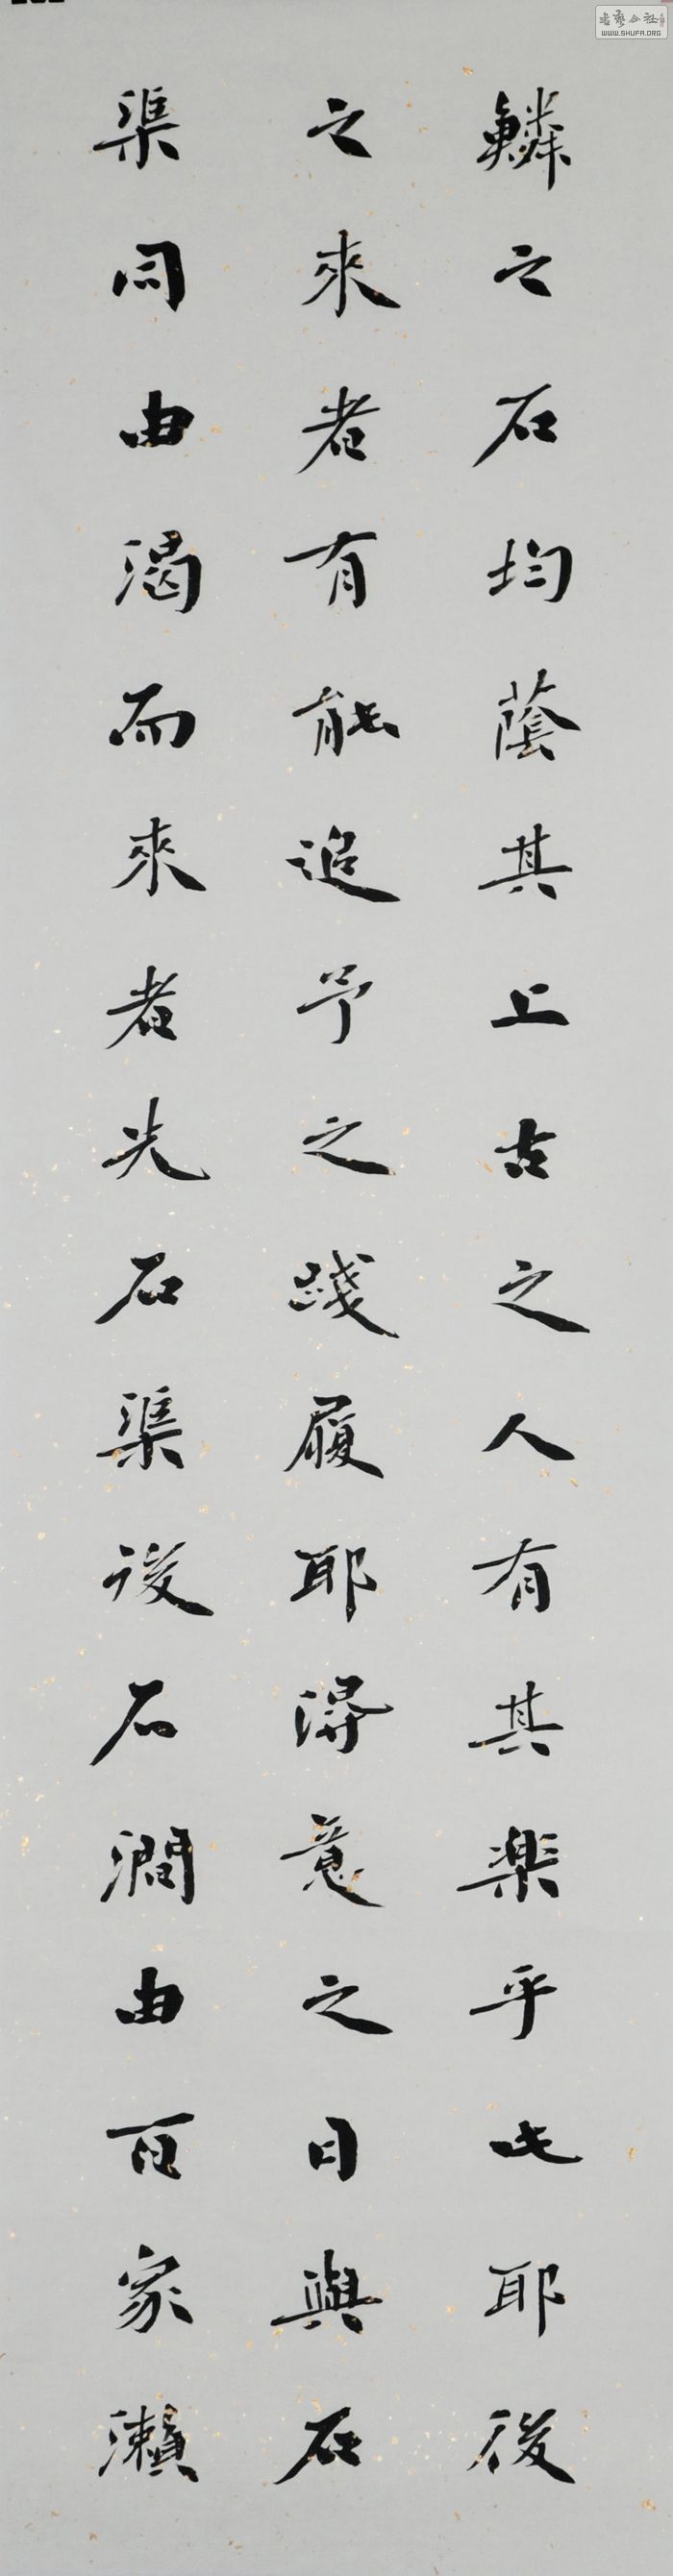 鱗之石均蔭其上古之人有其樂乎此耶後
之來者有能追予之踐履耶得意之日與石
渠同由渴而來者先石渠後石澗由百家瀨
WWW.SHUFA.ORG